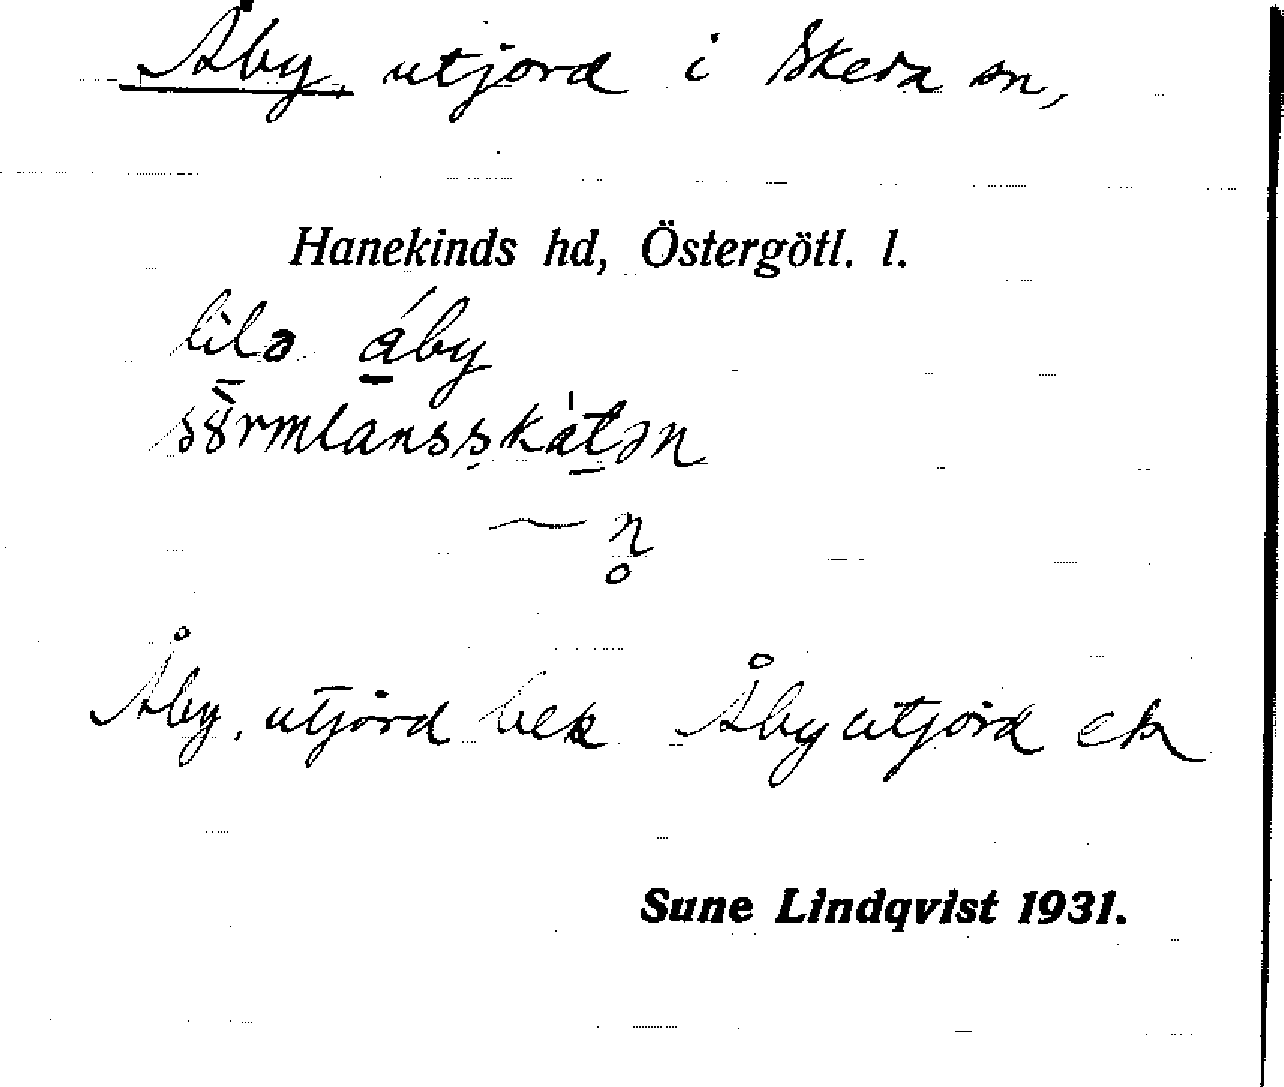 Åby, utjord i Skeda sn,
Hanekinds hd, Östergötl. l.
lilɘ áby
sörmlansskátən
~ n̥
Åby, utjord bek Åby utjord ek
Sune Lindqvist 1931.